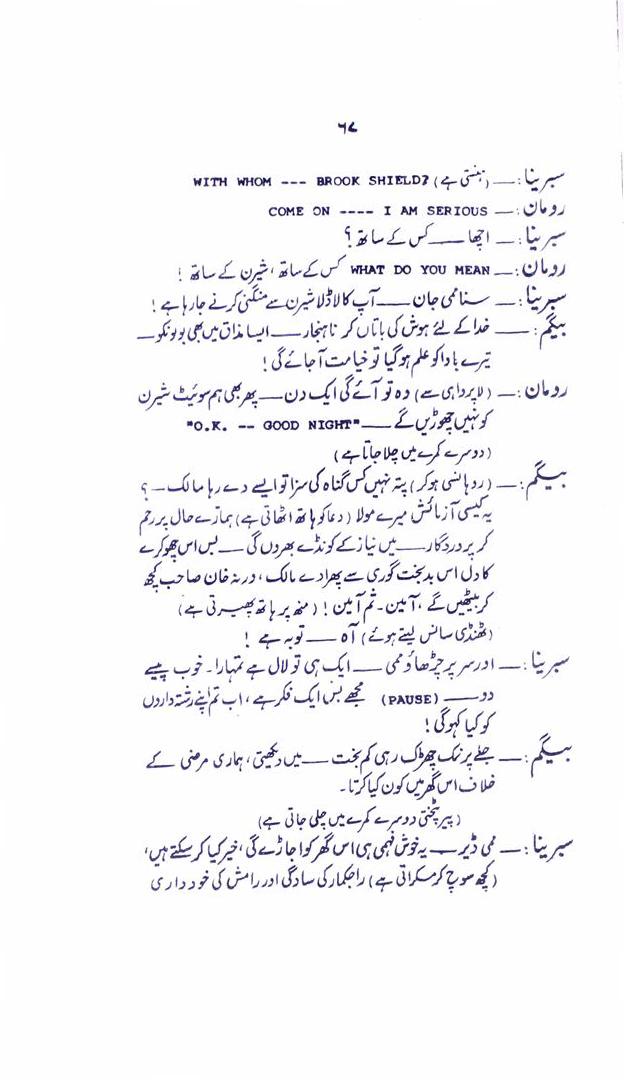 ۶۷
سبرینا :— (ہنستی ہے) WITH WHOM --- BROOK SHIELD?
رومان :— COME ON ---- I AM SERIOUS
سبرینا :— اچھا —— کس کے ساتھ ؟
رومان :— WHAT DO YOU MEAN کس کے ساتھ ، شیرن کے ساتھ !
سبرینا :— سنا ممی جان —— آپ کا لاڈلا شیرن سے منگنی کرنے جا رہا ہے !
بیگم :— خدا کے لئے ہوش کی باتاں کر ناہنجار —— ایسا مذاق میں بھی بولو نکو —
تیرے باوا کو علم ہو گیا تو خیامت آ جائے گی !
رومان :— (لاپرواہی سے) وہ تو آئے گی ایک دن — پھر بھی ہم سوئیٹ شیرن
کو نہیں چھوڑیں گے —— "O.K. -- GOOD NIGHT"
(دوسرے کمرے میں چلا جاتا ہے)
بیگم :— (روہانسی ہو کر) پتہ نہیں کس گناہ کی سزا تو ایسے دے رہا مالک — ؟
یہ کیسی آزمائش میرے مولا (دعا کو ہاتھ اٹھاتی ہے) ہمارے حال پر رحم
کر پروردگار —— میں نیاز کے کونڈے بھروں گی —— بس اس چھوکرے
کا دل اس بدبخت گوری سے پھرا دے مالک ، ورنہ خان صاحب کچھ
کر بیٹھیں گے ، آمین ۔ ثم آمین ! (منھ پر ہاتھ پھیرتی ہے)
(ٹھنڈی سانس لیتے ہوئے) آہ —— توبہ ہے !
سبرینا :— اور سر پر چڑھاؤ ممی —— ایک ہی تو لال ہے تمہارا ۔ خوب پیسے
دو —— (PAUSE) مجھے بس ایک فکر ہے ، اب تم اپنے رشتہ داروں
کو کیا کہو گی !
بیگم :— جلے پر نمک چھڑک رہی کم بخت —— میں دیکھتی ، ہماری مرضی کے
خلاف اس گھر میں کون کیا کرتا ۔
(پیر پٹختی دوسرے کمرے میں چلی جاتی ہے)
سبرینا :— ممی ڈیر — یہ خوش فہمی ہی اس گھر کو اجاڑے گی ، خیر کیا کر سکتے ہیں ،
(کچھ سوچ کر مسکراتی ہے) راجکمار کی سادگی اور رامش کی خودداری